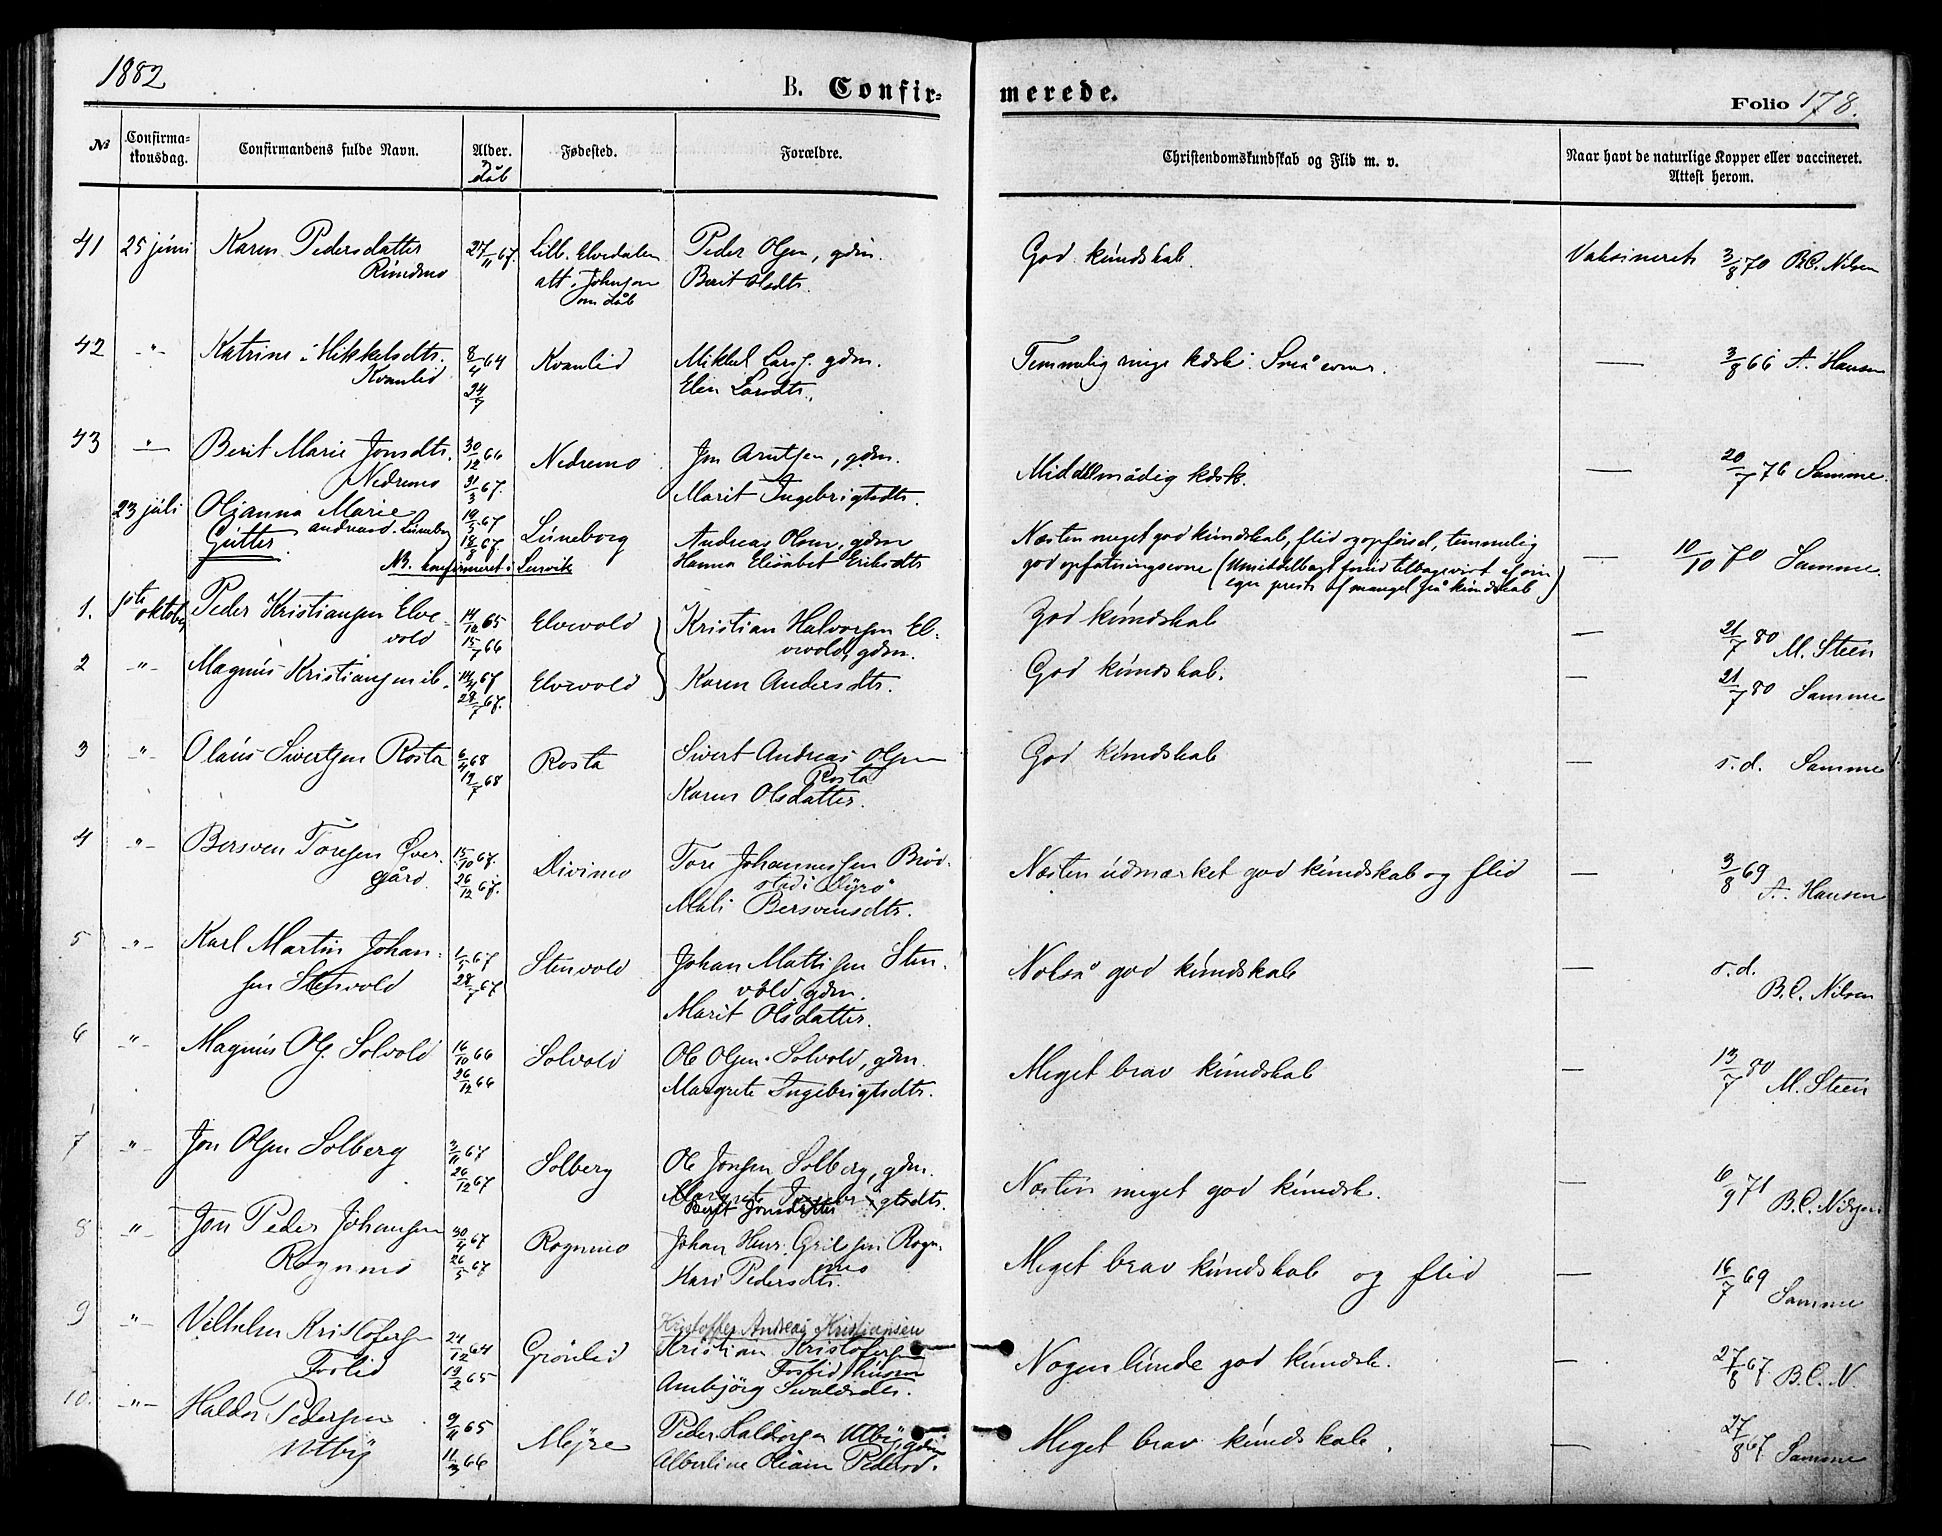 1882
B. Confir-
merede.
Folio 178.
№
Confirma-
tionsdag.
Confirmandens fulde Navn.
Alder.
Dåb
Fødested.
Forældre.
Christendomskundskab og Flid m. v.
Naar havt de naturlige Kopper eller vaccineret.
Attest herom.
41 25 juni Karen Pedersdatter 27/11 67. Lill. Elvedalen Peder Olsen, gdm. God kundskab. Vaksineret 3/8 70 B.C. Nilsen
Rundmo att. i Johnson Berit Olsdtr.
om dåb
42 -"- Katrine Mikkelsdtr. 8/4 64 Kvanlid Mikkel Lars. gdm. Temmelig ringe kdsk. Små evner. — 3/8 66 A. Hansen
Kvanlid 24/7 Elen Larsdtr.
43 -"- Berit Marie Jonsdtr. 30/12 66 Nedremo Jon Arntsen, gdm. Middelmådig kdsk. — 20/7 76 Samme.
Nedremo 31/3 67. Marit Ingebrigtsdtr.
23 juli Oljanna Marie 19/5 67 Lüneborg Andreas Olsen, gdm Næsten meget god kundskab, flid og opførsel, temmelig — 10/10 70 Samme.
Gutter. Andreasd. Lüneborg 18/8 67. Hanna Elisabet Eriksdtr god opfatningsevne (Umiddelbart forud tilbagevist af sin
NB. konfirmeret i Lenvik egen prest af mangel på kundskab)
1. 1ste oktober Peder Kristiansen Elve- 14/12 65 Elvevold Kristian Halvorsen El- God kundskab — 21/7 80 M. Steen
vold 15/7 66 vevold, gdm.
2 -"- Magnus Kristiansen ib. 67 Elvevold Karen Andersdtr. God kundskab. — 21/7 80 Samme
28/7 67.
3 -"- Olaus Sivertsen Rosta 6/4 68 Rosta Sivert Andreas Olsen God kundskab — s. d. Samme
19/7 68 Rosta
Karen Olsdatter.
4 -"- Bersven Toresen Øver- 15/10 67. Divimo Tore Johannessen Bröd- Næsten udmærket god kundskab og flid — 3/8 69
gård. 26/12 67. stad i Dyrö A. Hansen
Mali Bersvensdtr.
5 -"- Karl Martin Johan- 1/5 67 Stenvold Johan Mattisen Sten- Nokså god kundskab — s. d.
sen Stenvold 28/7 67 vold, gdm. B.C. Nilsen
Marit Olsdatter.
6 -"- Magnus Ols. Solvold 16/10 66 Solvold Ole Olsen Solvold, gdm. Meget brav kundskab — 13/7 80
26/12 66 Margrete Ingebrigtsdtr. M. Steen
7 -"- Jon Olsen Solberg 3/11 67 Solberg Ole Jonsen Solberg, gdm. Næsten meget god kundsk. — 6/9 71
26/12 67 Margrete Ingebrigtsdtr. B.C. Nilsen
Berit Jonsdatter
8 -"- Jon Peder Johansen 30/4 67 Rognmo Johan Henr. Erilsen Rogn- Meget brav kundskab og flid — 16/7 69
Rognmo 26/5 67 mo Samme
Kari Pedersdtr.
9 -"- Vilhelm Kristofersen 24/12 64 Grönlid Kristoffer Andreas Kristiansen Nogenlunde god kundsk. — 27/8 67
Forlid 19/2 65 Kristian Kristofersen B.C. N.
Forlid, husm
Anbjörg Sivaldsdtr.
10. -"- Haldor Pedersen 9/11 65 Mejre Peder Haldorsen Utby, gdm Meget brav kundskab. — 27/8 67
Utby 11/3 66 Albertine Oliam Pedersd. Samme